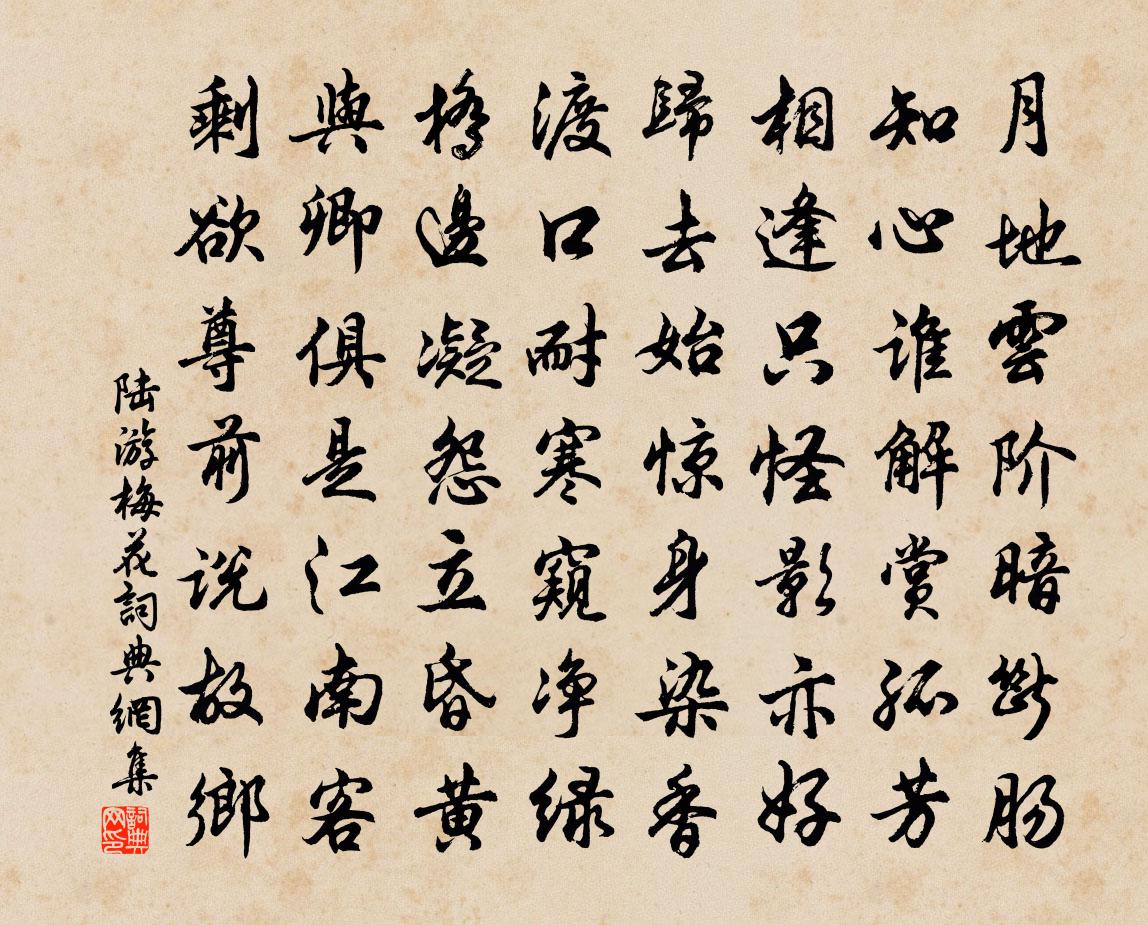 月地雲阶暗斷肠
知心谁解赏孤芳
相逢只怪影亦好
歸去始惊身染香
渡口耐寒窺净绿
橋邊凝怨立昏黄
與卿俱是江南客
剩欲尊前说故鄉
陆游梅花詞典網集
詞典网印